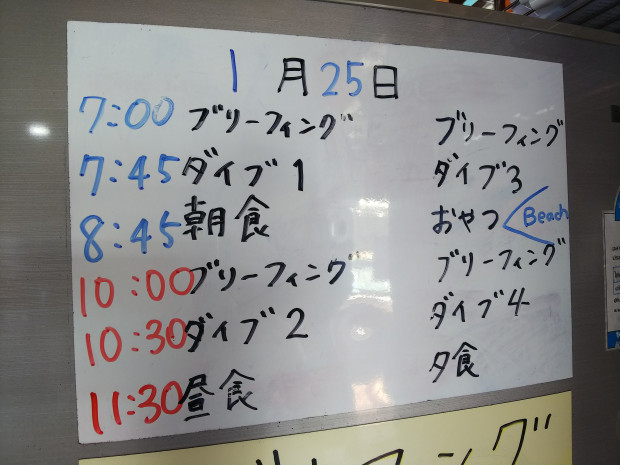 1月25日
7:00 ブリーフィング
7:45 ダイブ1
8:45 朝食
10:00 ブリーフィング
10:30 ダイブ2
11:30 昼食
ブリーフィング
ダイブ3
おやつ Beach
ブリーフィング
ダイブ4
夕食